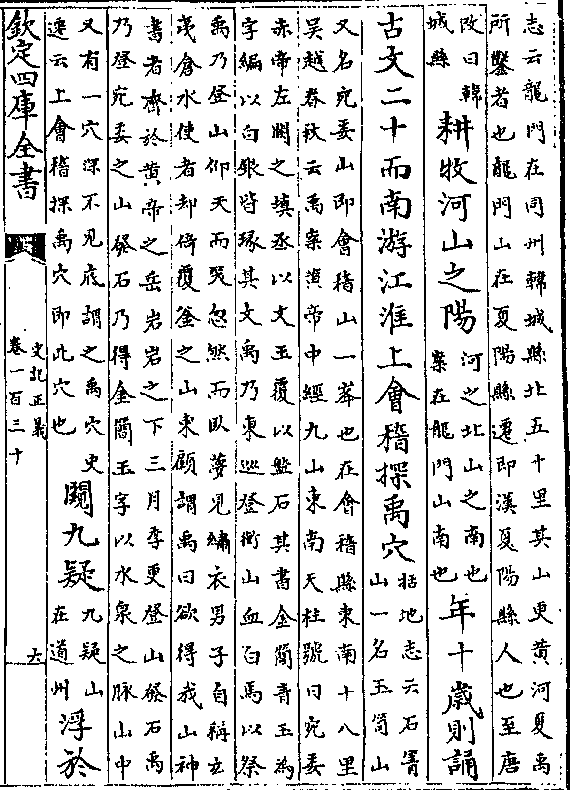 志云龍門在同州韓城縣北五十里其山更黄河夏禹
所鑿者也龍門山在夏陽縣遷即漢夏陽縣人也至唐
改曰韓
城縣
耕牧河山之陽
河之北山之南也
案在龍門山南也
年十歲則誦
古文二十而南游江淮上會稽探禹穴
括地志云石箐
山一名玉笥山
又名宛委山即會稽山一峯也在會稽縣東南十八里
吴越春秋云禹案黄帝中經九山東南天柱號曰宛委
赤帝左闕之填承以文玉覆以盤石其書金簡青玉為
字編以白銀皆瑑其文禹乃東巡登衡山血白馬以祭
禹乃登山仰天而笑忽然而卧夢見繡衣男子自稱玄
夷倉水使者却倚覆釜之山東顧謂禹曰欲得我山神
書者齋於黄帝之岳岩岩之下三月季更登山發石禹
乃登宛委之山發石乃得金簡玉字以水泉之脉山中
又有一穴深不見底謂之禹穴史
遷云上會稽探禹穴即此穴也
闚九疑
九疑山
在道州
浮於
欽定四庫全書
史記正義
卷一百三十
六